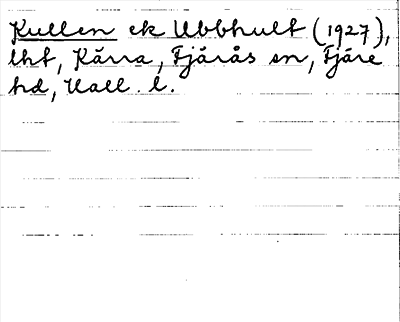 Kullen ek Ubbhult (1927),
lht, Kärra, Fjärås sn, Fjäre
hd, Hall. l.